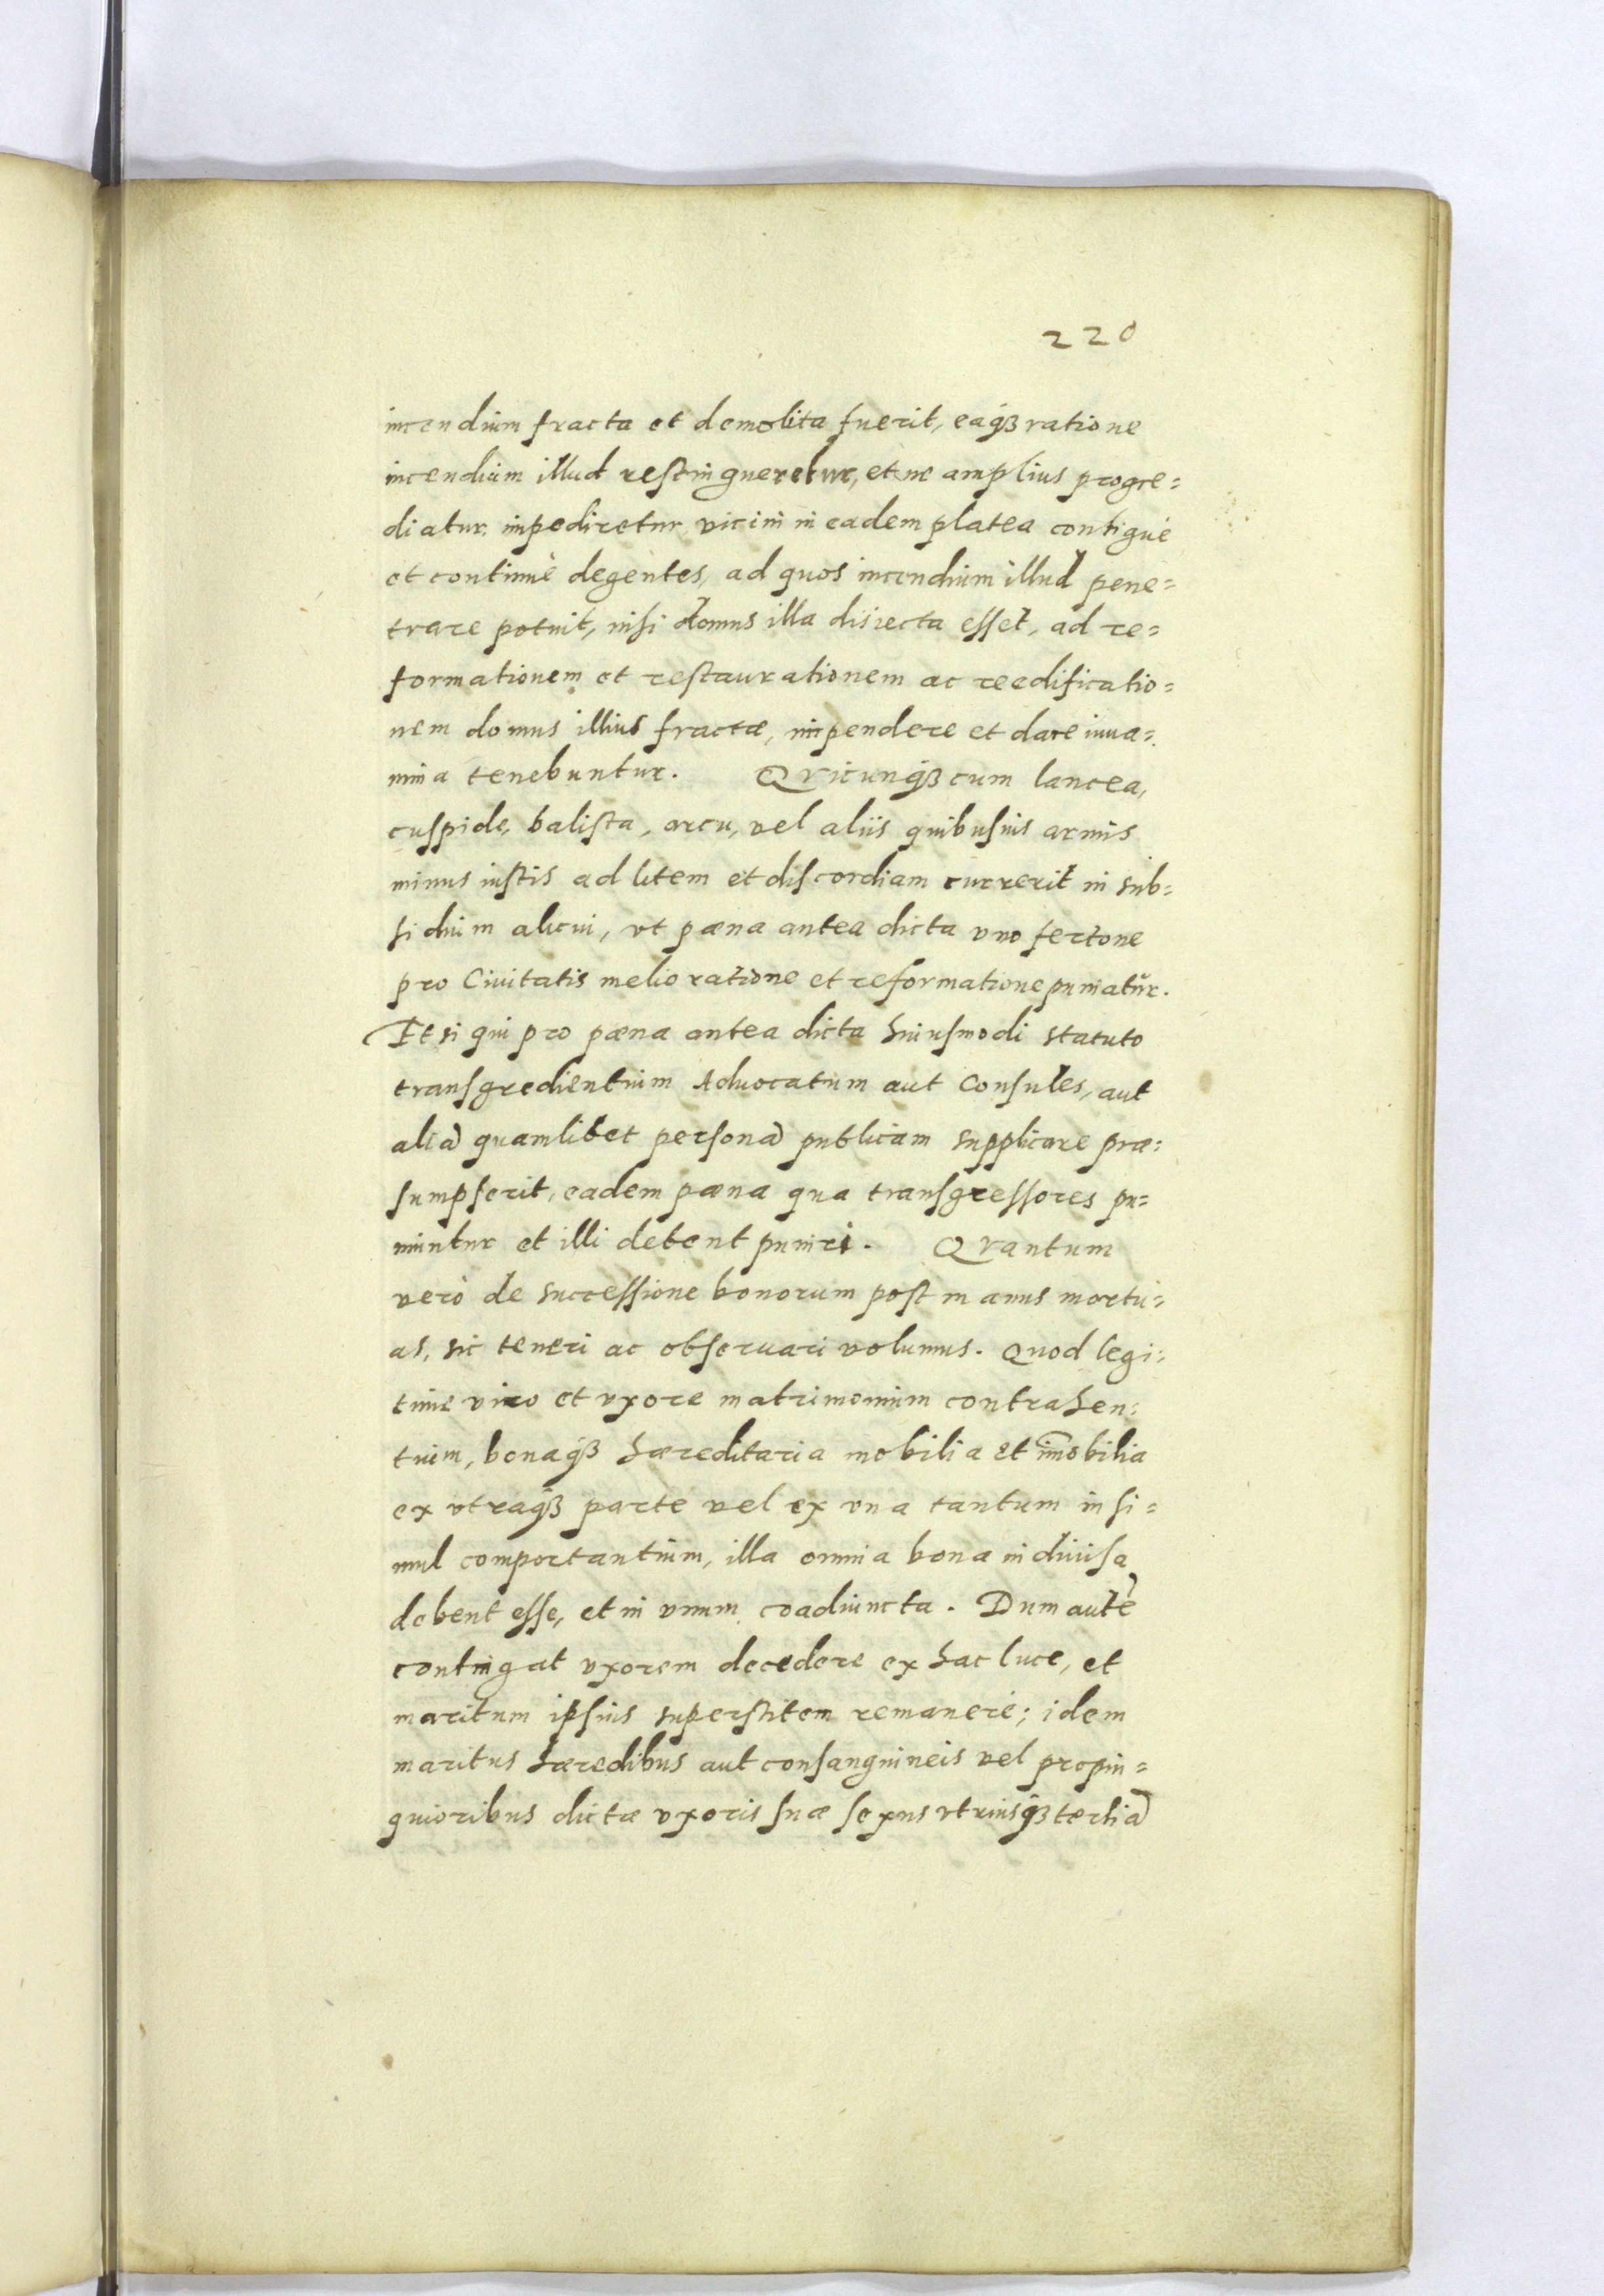 220
incendium fracta et demolita fuerit, eaqꝫ ratione
incendium illud restingueretur, et ne amplius progre=
diatur impediretur, vicini in eadem platea contiguè
et continuè degentes, ad quos incendium illud pene=
trare potuit, nisi domus illa disiecta esset, ad re=
formationem et restaurationem ac reedificatio=
nem domus illius fractæ, impendere et dare iuua=
mina tenebuntur. Qvicunqꝫ cum lancea,
cuspide, balista, arcu, vel aliis quibusuis armis
minus iustis ad litem et discordiam currerit in sub=
sidium alicui, vt pæna antea dicta vno fertone
pro Ciuitatis melioratione et reformatione puniatur.
Et si qui pro pæna antea dicta huiusmodi statuto
transgredientium Aduocatum aut Consules, aut
aliā quamlibet personā publicam supplicare præ=
sumpserit, eadem pæna qua transgressores pu=
niuntur et illi debent puniri. Qvantum
verò de successione bonorum post manus mortu=
as, sic teneri ac obseruari volumus. Quod legi=
time viro et vxore matrimonium contrahen=
tium, bonaqꝫ hæreditaria mobilia et im̄obilia
ex vtraqꝫ parte vel ex vna tantum insi=
mul comportantium, illa omnia bona indiuisa
debent esse, et in vnum coadiuncta. Dum autē
contingat vxorem decedere ex hac luce, et
maritum ipsius superstitem remanere; idem
maritus hæredibus aut consanguineis vel propin=
quioribus dictæ vxoris suæ sexus vtriusqꝫ tertiā